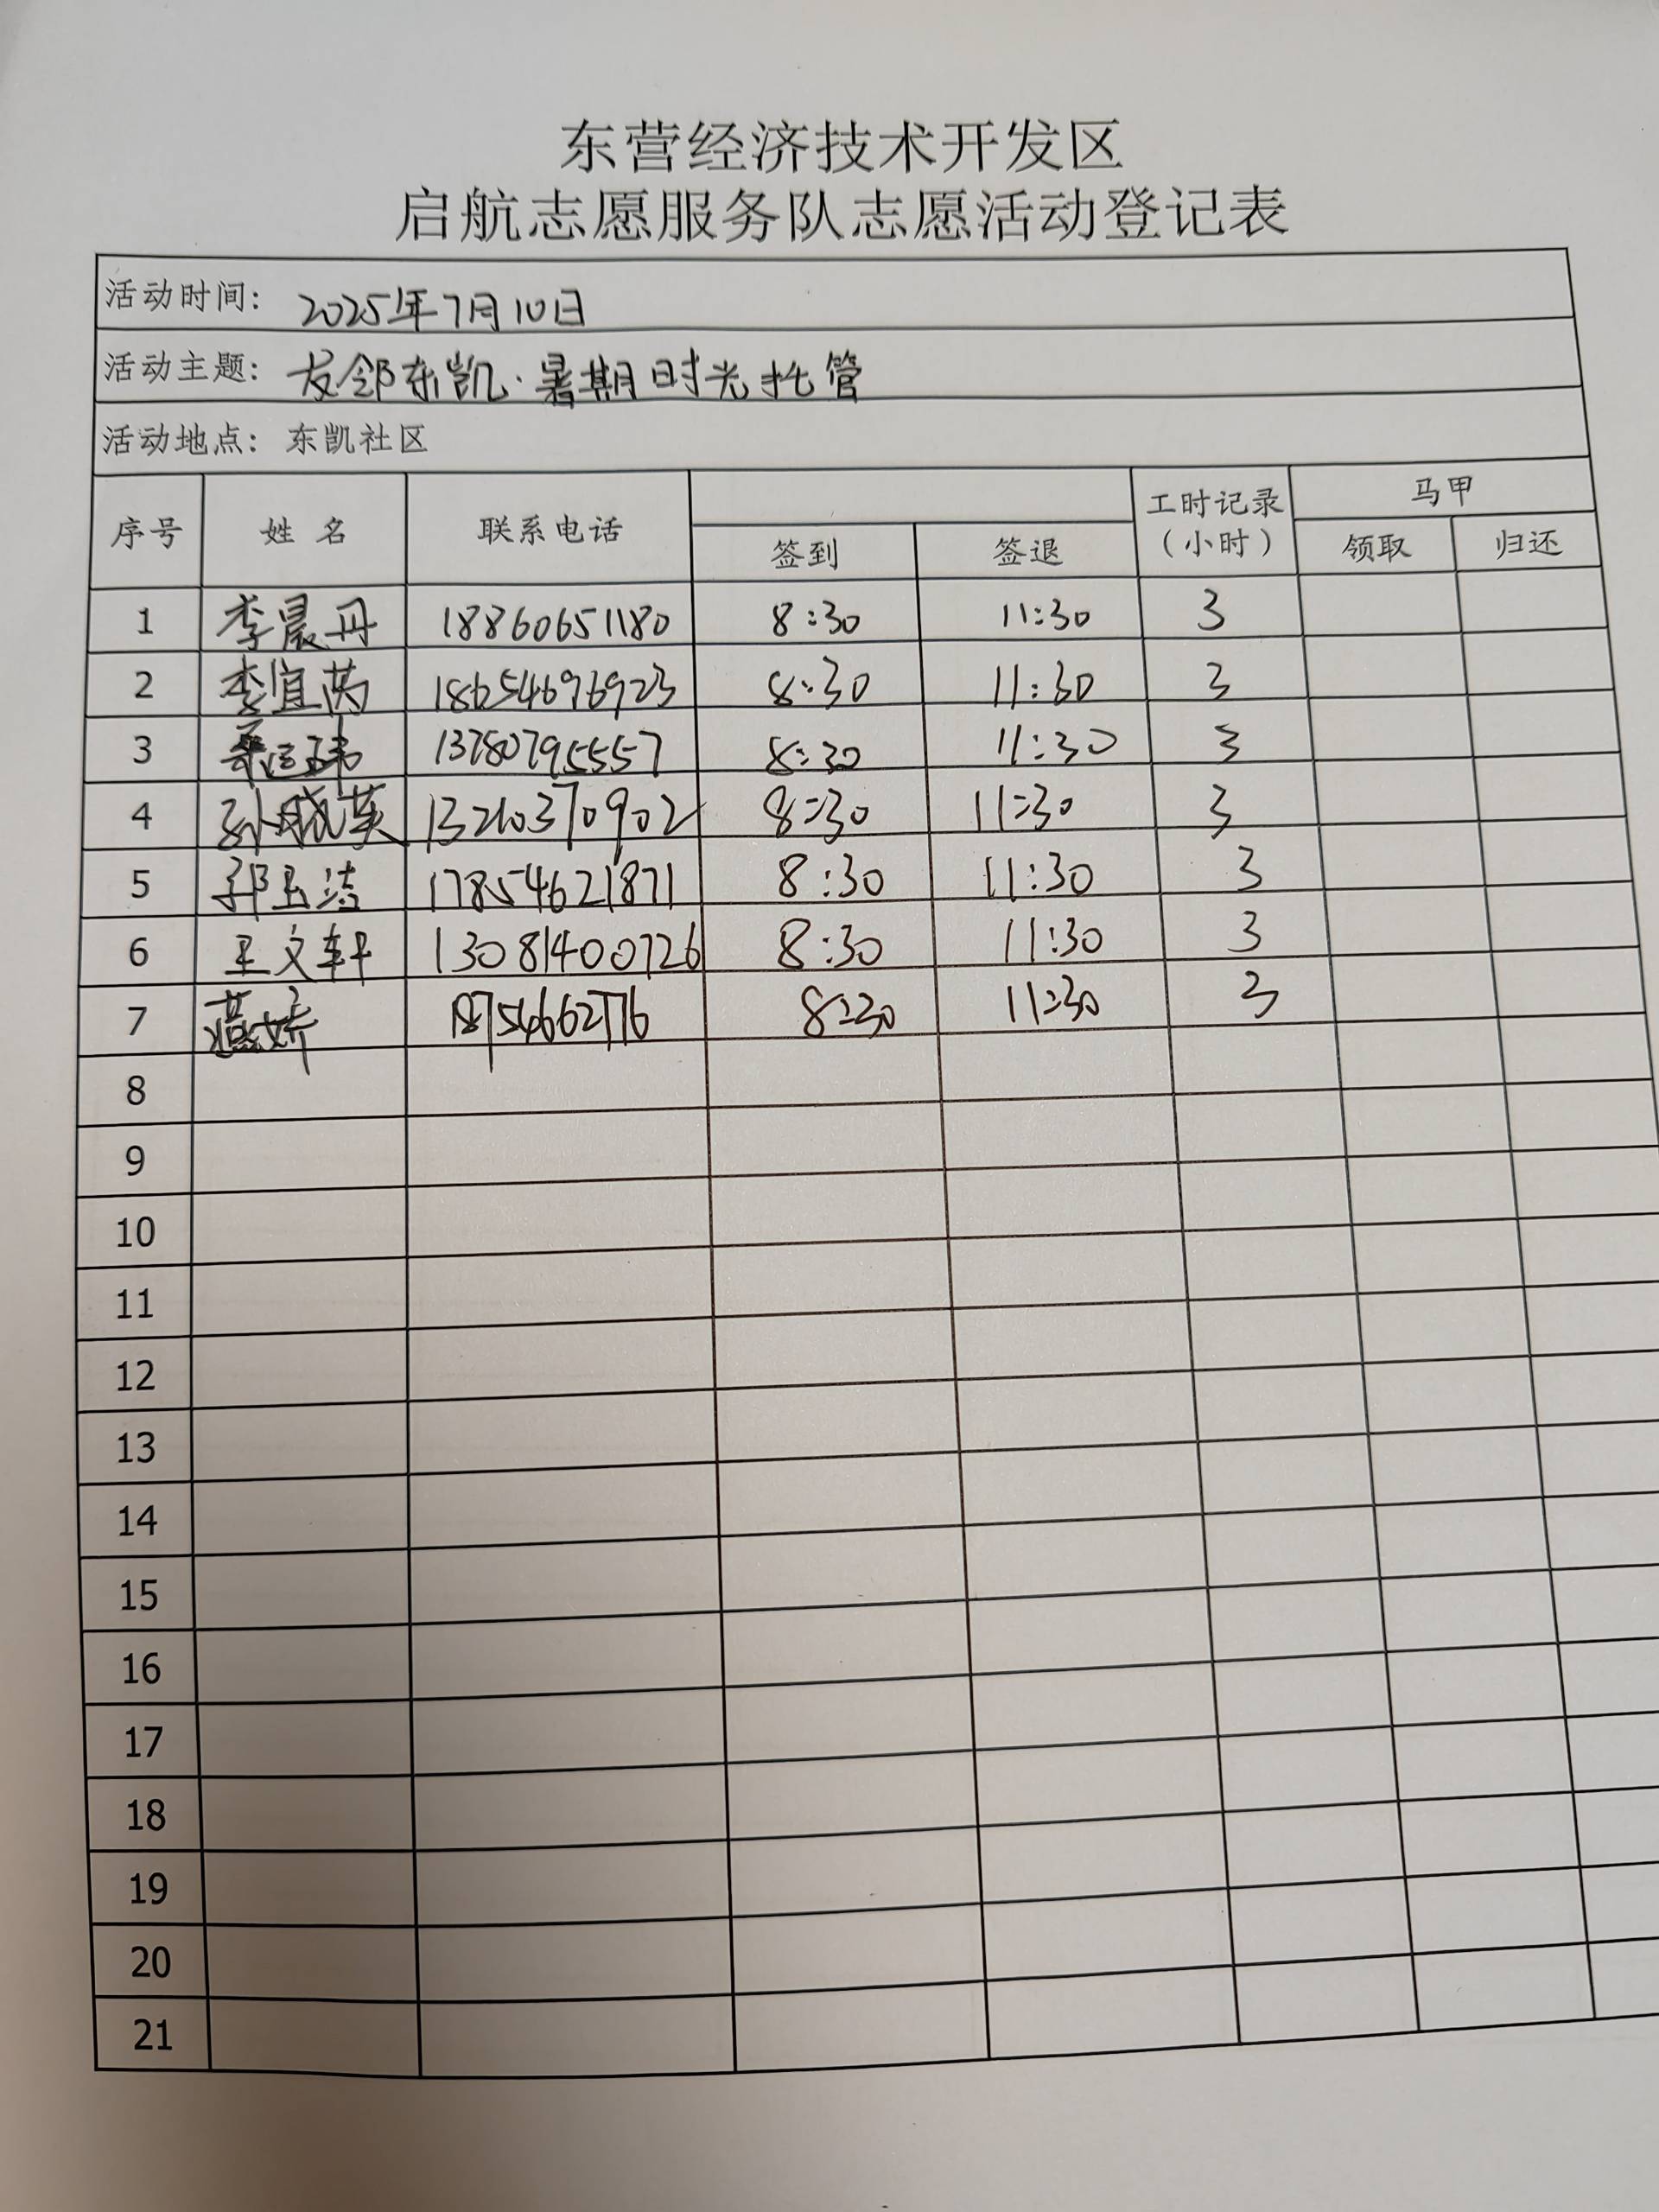 东营经济技术开发区
启航志愿服务队志愿活动登记表
活动时间: 2025年7月10日
活动主题: 友邻东凯·暑期时光托管
活动地点: 东凯社区
序号 姓 名 联系电话 签到 签退 工时记录(小时) 马甲 领取 归还
1 李晨丹 18860651180 8:30 11:30 3
2 李宜芮 18654696923 8:30 11:30 3
3 13780795557 8:30 11:30 3
4 孙晓英 13210370902 8:30 11:30 3
5 郭玉洁 17854621871 8:30 11:30 3
6 王文轩 13081400726 8:30 11:30 3
7 燕娇 18754662776 8:30 11:30 3
8
9
10
11
12
13
14
15
16
17
18
19
20
21